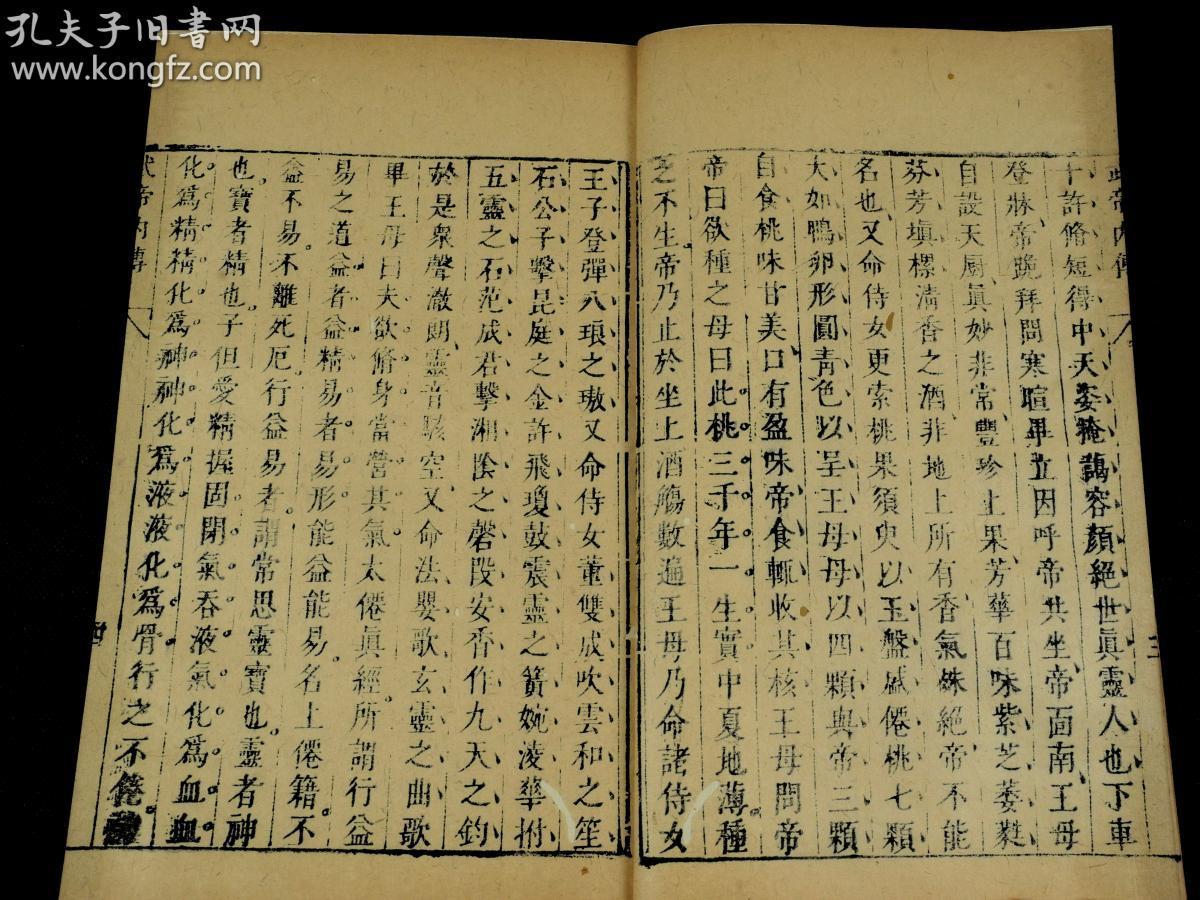 孔夫子旧书网
www.kongfz.com
十許脩短得中天姿掩藹容顏絕世真靈人也下車
登牀帝跪拜問寒暄畢立因呼帝共坐帝面南王母
自設天厨真妙非常豐珍上果芳華百味紫芝萎蕤
芬芳填樏清香之酒非地上所有香氣殊絕帝不能
名也又命侍女更索桃果須臾以玉盤盛僊桃七顆
大如鴨卵形圓青色以呈王母母以四顆與帝三顆
自食桃味甘美口有盈味帝食輒收其核王母問帝
帝曰欲種之母曰此桃三千年一生實中夏地薄種
之不生帝乃止於坐上酒觴數遍王母乃命諸侍女
三
王子登彈八琅之璈又命侍女董雙成吹雲和之笙
石公子擊昆庭之金許飛瓊鼓震靈之簧婉淩華拊
五靈之石范成君擊湘陰之磬段安香作九天之鈞
於是衆聲澈朗靈音駭空又命法嬰歌玄靈之曲歌
畢王母曰夫欲脩身當營其氣太僊真經所謂行益
易之道益者益精易者易形能益能易名上僊籍不
益不易不離死厄行益易者謂常思靈寶也靈者神
也寶者精也子但愛精握固閉氣吞液氣化爲血血
化爲精精化爲神神化爲液液化爲骨行之不倦
武帝內傳
四